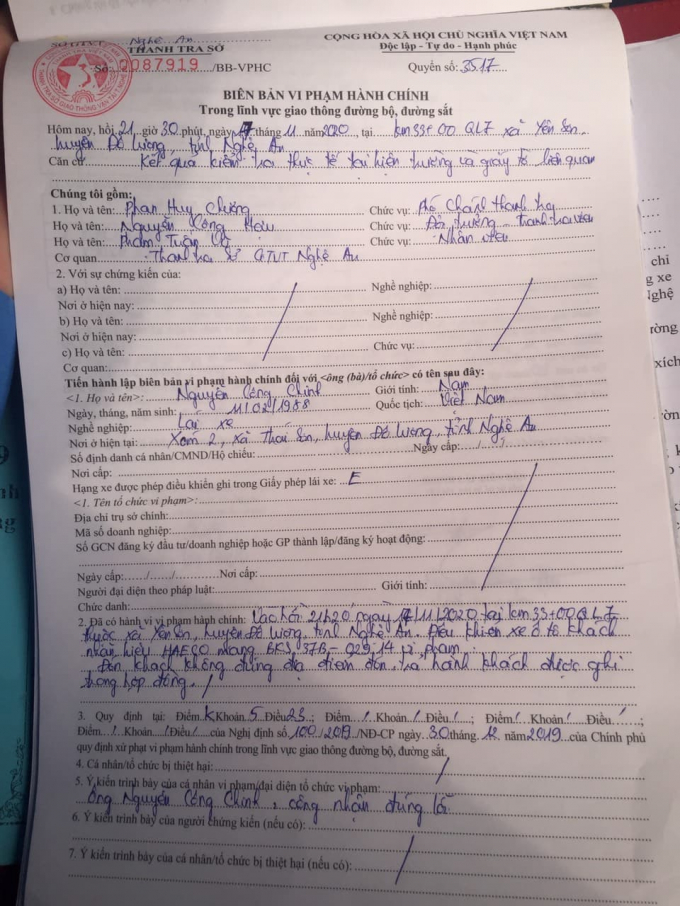 SỞ GTVT Nghệ An
THANH TRA SỞ
CỘNG HÒA XÃ HỘI CHỦ NGHĨA VIỆT NAM
Độc lập - Tự do - Hạnh phúc
Số: 0087919/BB-VPHC
Quyển số: 3517
BIÊN BẢN VI PHẠM HÀNH CHÍNH
Trong lĩnh vực giao thông đường bộ, đường sắt
Hôm nay, hồi 21 giờ 30 phút, ngày 17 tháng 11 năm 2020, tại km33+00 QL7 xã Yên Sơn,
huyện Đô Lương, tỉnh Nghệ An
Căn cứ Kết quả kiểm tra thực tế tại hiện trường và giấy tờ liên quan
Chúng tôi gồm:
1. Họ và tên: Phan Huy Chương Chức vụ: Phó Chánh thanh tra
Họ và tên: Nguyễn Công Chức vụ: Đội trưởng - thanh tra viên
Họ và tên: Phạm Tuấn Chức vụ: Nhân viên
Cơ quan Thanh tra Sở GTVT Nghệ An
2. Với sự chứng kiến của:
a) Họ và tên: Nghề nghiệp:
Nơi ở hiện nay:
b) Họ và tên: Nghề nghiệp:
Nơi ở hiện nay:
c) Họ và tên: Chức vụ:
Cơ quan:
Tiến hành lập biên bản vi phạm hành chính đối với <ông (bà)/tổ chức> có tên sau đây:
<1. Họ và tên>: Nguyễn Công Chính Giới tính: Nam
Ngày, tháng, năm sinh: 11/02/1988 Quốc tịch: Việt Nam
Nghề nghiệp: Lái xe
Nơi ở hiện tại: Xóm 2, xã Thái Sơn, huyện Đô Lương, tỉnh Nghệ An
Số định danh cá nhân/CMND/Hộ chiếu: Ngày cấp: / /
Nơi cấp:
Hạng xe được phép điều khiển ghi trong Giấy phép lái xe: E
<1. Tên tổ chức vi phạm>:
Địa chỉ trụ sở chính:
Mã số doanh nghiệp:
Số GCN đăng ký đầu tư/doanh nghiệp hoặc GP thành lập/đăng ký hoạt động:
Ngày cấp: / / Nơi cấp:
Người đại diện theo pháp luật: Giới tính:
Chức danh:
2. Đã có hành vi vi phạm hành chính: Vào hồi 21h20 ngày 17/11/2020 tại km33+00 QL7
thuộc xã Yên Sơn, huyện Đô Lương, tỉnh Nghệ An. Điều khiển xe ô tô khách
nhãn hiệu HAECO mang BKS 37B-029.14 vi phạm:
Đón khách không đúng địa điểm đón, trả hành khách được ghi
trong hợp đồng. /
3. Quy định tại: Điểm K Khoản 5 Điều 23; Điểm / Khoản / Điều /; Điểm / Khoản / Điều /;
Điểm / Khoản / Điều / của Nghị định số 100/2019/NĐ-CP ngày 30 tháng 12 năm 2019 của Chính phủ
quy định xử phạt vi phạm hành chính trong lĩnh vực giao thông đường bộ, đường sắt.
4. Cá nhân/tổ chức bị thiệt hại:
5. Ý kiến trình bày của cá nhân vi phạm/đại diện tổ chức vi phạm:
Ông Nguyễn Công Chính, công nhận đúng lỗi
6. Ý kiến trình bày của người chứng kiến (nếu có):
7. Ý kiến trình bày của cá nhân/tổ chức bị thiệt hại (nếu có):